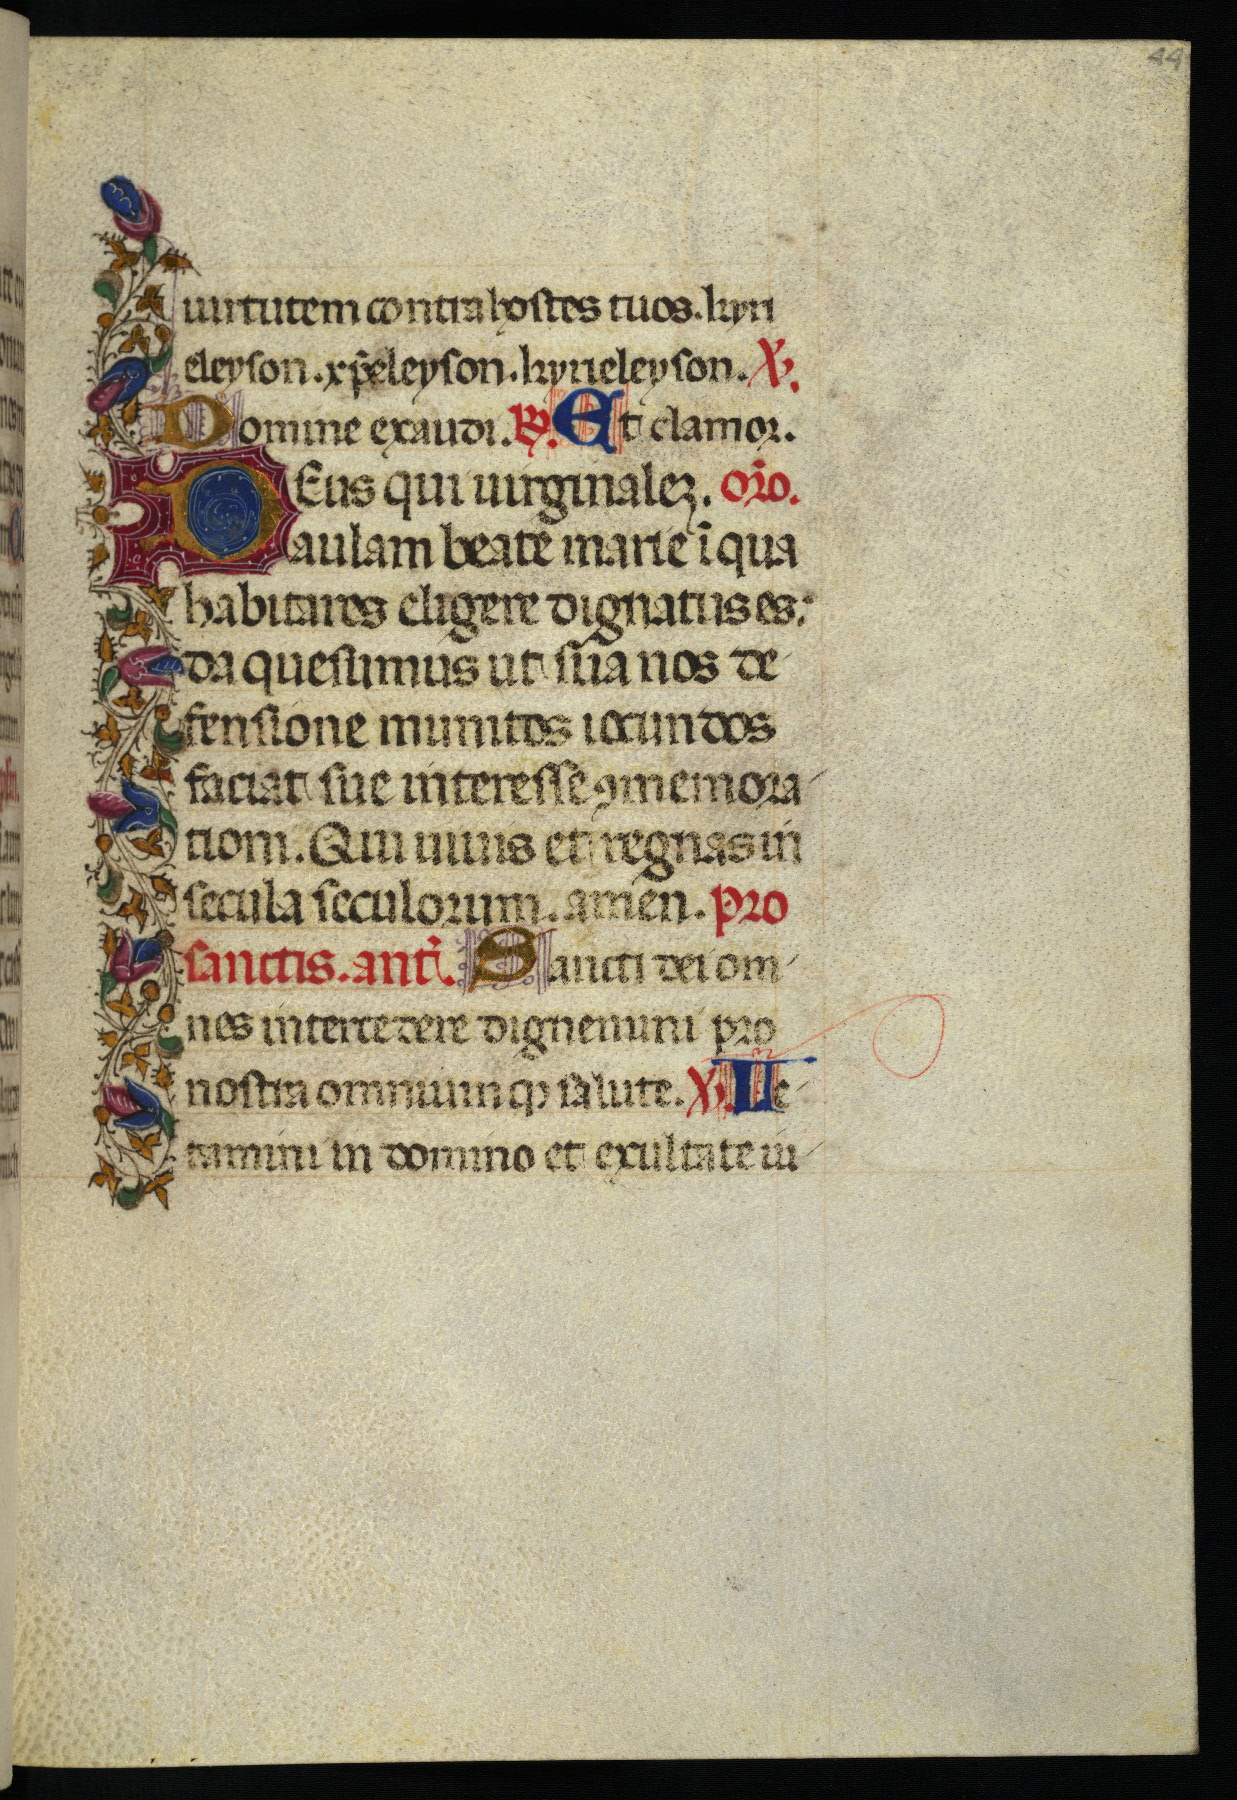 44
uirtutem contra hostes tuos. kyri
eleyson. xp̄eleyson. kyrieleyson. ℣.
Domine exaudi. ℟. Et clamor.
DEus qui uirginalez. or̄o.
aulam beate marie ī qua
habitares eligere dignatus es:
da quesumus ut sua nos de
fensione munitos iocundos
faciat sue interesse ꝯmemora
tioni. Qui uiuis et regnas in
secula seculorum. amen. pro
sanctis. ant̄i. Sancti dei om
nes intercedere dignemini pro
nostra omnium qꝫ salute. ℣. Le
tamini in domino et exultate iu